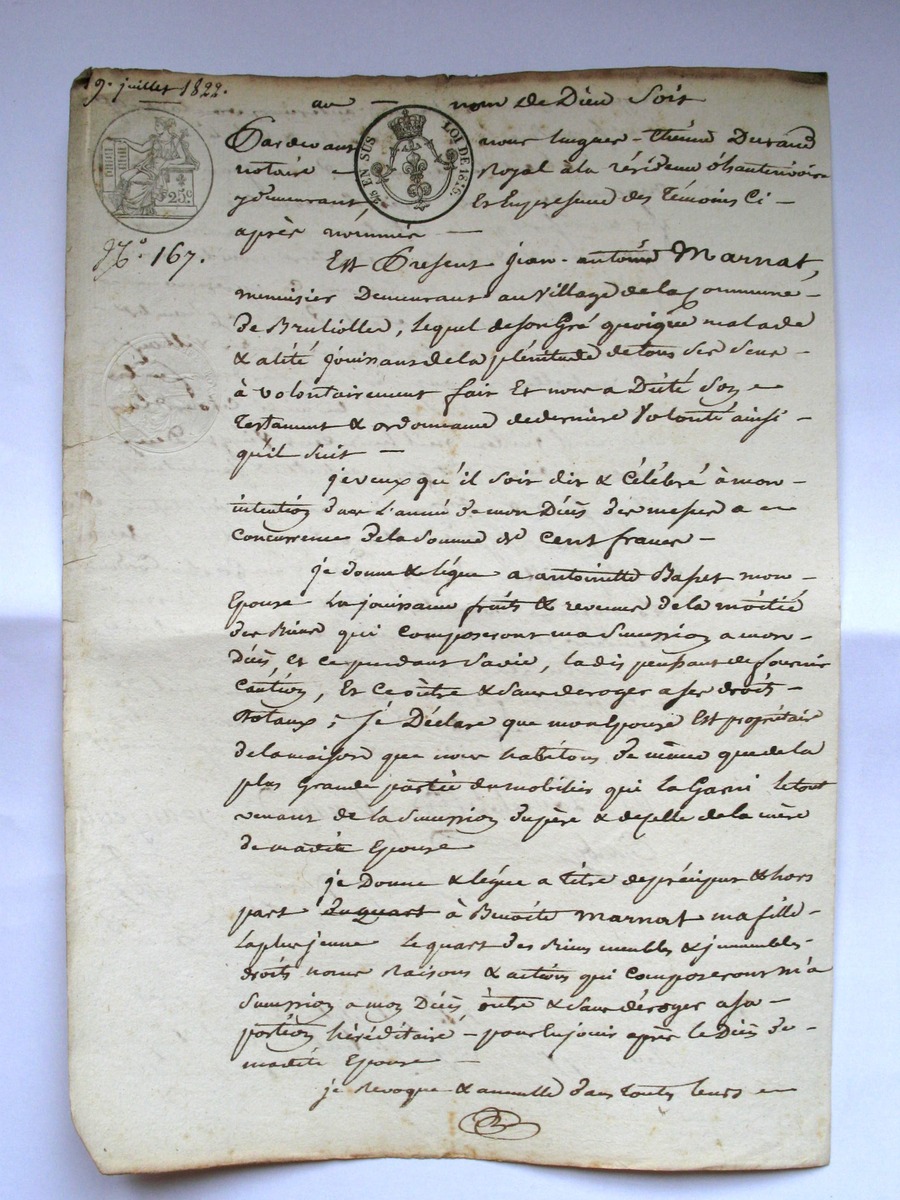 19. juillet 1822.
au — nom de Dieu soit
Pardevant nous hugues - thienne Durand
notaire Royal à la résidence
y demeurant Et En presence des Témoins Ci -
après nommés —
EN SUS
LOI DE 1816.
25c
N.º 167.
Est Present jean - antoine Marnat,
menuisier Demeurant au Village de la Commune -
de Brulliolles, lequel de son Gré quoique malade
& alité jouissant de la plénitude de tous ses sens -
à volontairement fait Et nous a Dicté son
Testament & ordonnance de derniere Volonté ainsi -
qu'il suit —
je veux qu'il soit dit & Célébré à mon -
intention dans L'année de mon Décès des messes a
Concurrence de la somme de Cent francs -
je donne & légue a antoinette Basset mon -
Epouse La jouissance fruits & revenus de la moitié
des Biens qui Composeront ma Succession a mon -
Décès, et ce pendant sa vie, la dispensant de fournir
Caution, Et Ce outre & sans deroger a ses droits -
Dotaux ; je Déclare que mon Epouse Est propriétaire
de la maison que nous habitons de même que de la
plus Grande partie du mobilier qui la Garni le tout
venant de la Succession du père & de celle de la mère
de madite Epouse
je Donne & légue a titre de préciput & hors
part du quart à Benoîte Marnat ma fille -
la plus jeune Le quart des Biens meubles & immeubles -
droits noms Raisons & actions qui Composeront ma
Succession a mon Décès, outre & sans déroger a sa -
portion héréditaire - pour En jouir après le Décès de -
madite Epouse —
je Revoque & annulle dans toute leurs